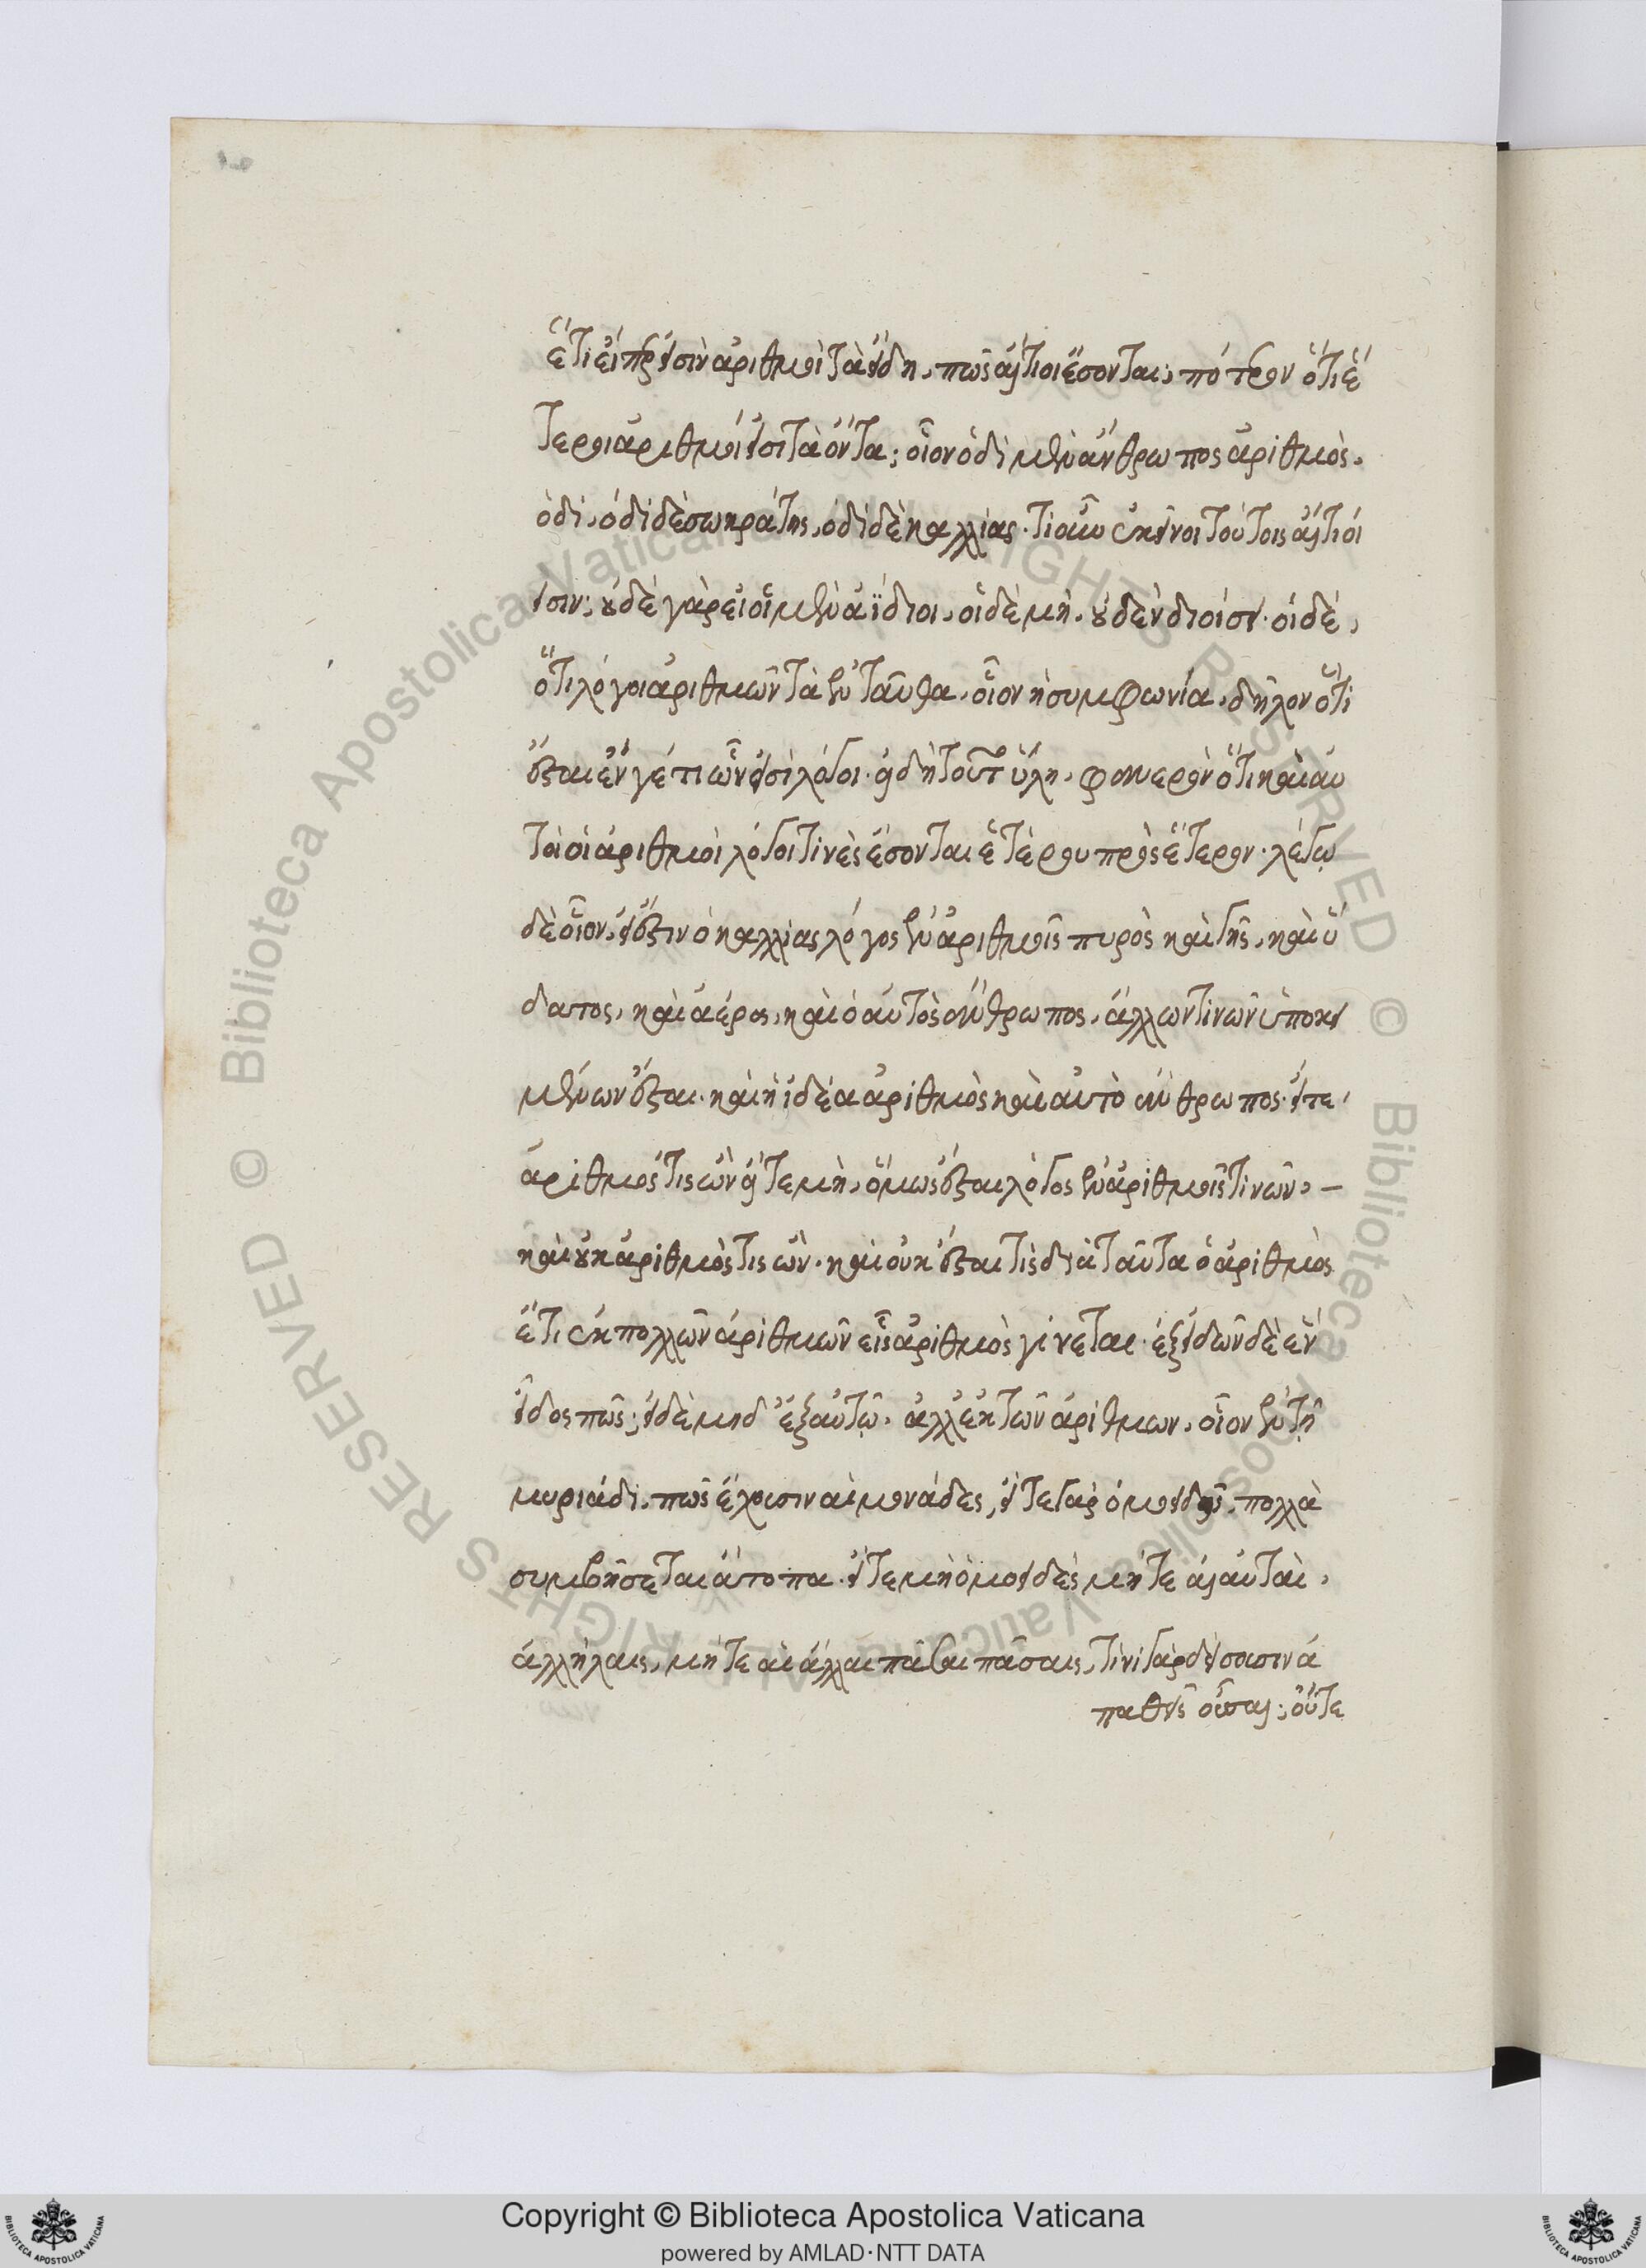 ἔτι εἴπερ εἰσὶν ἀριθμοὶ τὰ εἴδη, πῶς αἴτιοι ἔσονται; πότερον ὅτι ἕ
τεροι ἀριθμοί εἰσι τὰ ὄντα; οἷον ὁδὶ μὲν ἄνθρωπος ἀριθμὸς,
ὁδὶ, ὁδὶ δὲ σωκράτης, ὁδὶ δὲ καλλίας. τί οὖν ἐκεῖνοι τούτοις αἴτιοί
εἰσιν; οὐδὲ γὰρ εἰ οἱ μὲν ἀΐδιοι, οἱ δὲ μὴ, οὐδὲν διοίσει. οἱ δὲ,
ὅτι λόγοι ἀριθμῶν τὰ ἐνταῦθα, οἷον ἡ συμφωνία, δῆλον ὅτι
ἔσται ἕν γέ τι ὧν εἰσὶ λόγοι. εἰ δὴ τοῦτ ὕλη, φανερὸν ὅτι καὶ αὐ
τοὶ οἱ ἀριθμοὶ λόγοι τινὲς ἔσονται ἑτέρου πρὸς ἕτερον. λέγω
δὲ οἷον, εἰ ἔστιν ὁ καλλίας λόγος ἐν ἀριθμοῖς πυρὸς καὶ γῆς, καὶ ὕ
δατος, καὶ ἀέρος, καὶ ὁ αὐτὸς ἄνθρωπος, ἄλλων τινῶν ὑποκει
μένων ἔσται. καὶ ἡ ἰδέα ἀριθμὸς καὶ αὐτὸ ἄνθρωπος. εἴτε
ἀριθμός τις ὢν εἴτε μὴ, ὅμως ἔσται λόγος ἐν ἀριθμοῖς τινῶν, –
καὶ οὐκ ἀριθμὸς τις ὢν. καὶ οὐκ ἔσται τὶς διὰ ταῦτα ὁ ἀριθμὸς
ἔτι ἐκ πολλῶν ἀριθμῶν εἷς ἀριθμὸς γίνεται. ἐξ εἰδῶν δὲ ἓν
εἶδος πῶς; εἰ δὲ μηδ ἐξ αὐτῶ. ἀλλ ἐκ τῶν ἀρίθμων, οἷον ἐν τῇ
μυριάδι, πῶς ἔχουσιν αἱ μονάδες, εἴτε γὰρ ὁμοειδεῖς, πολλὰ
συμβήσεται ἄτοπα. εἴτε μὴ ὁμοειδεῖς μήτε αἱ αὐταὶ,
ἀλλήλαις, μήτε αἱ ἄλλαι πᾶσαι πάσαις, τίνι γὰρ διοίσουσιν ἀ
παθεῖς οὖσαι; οὔτε